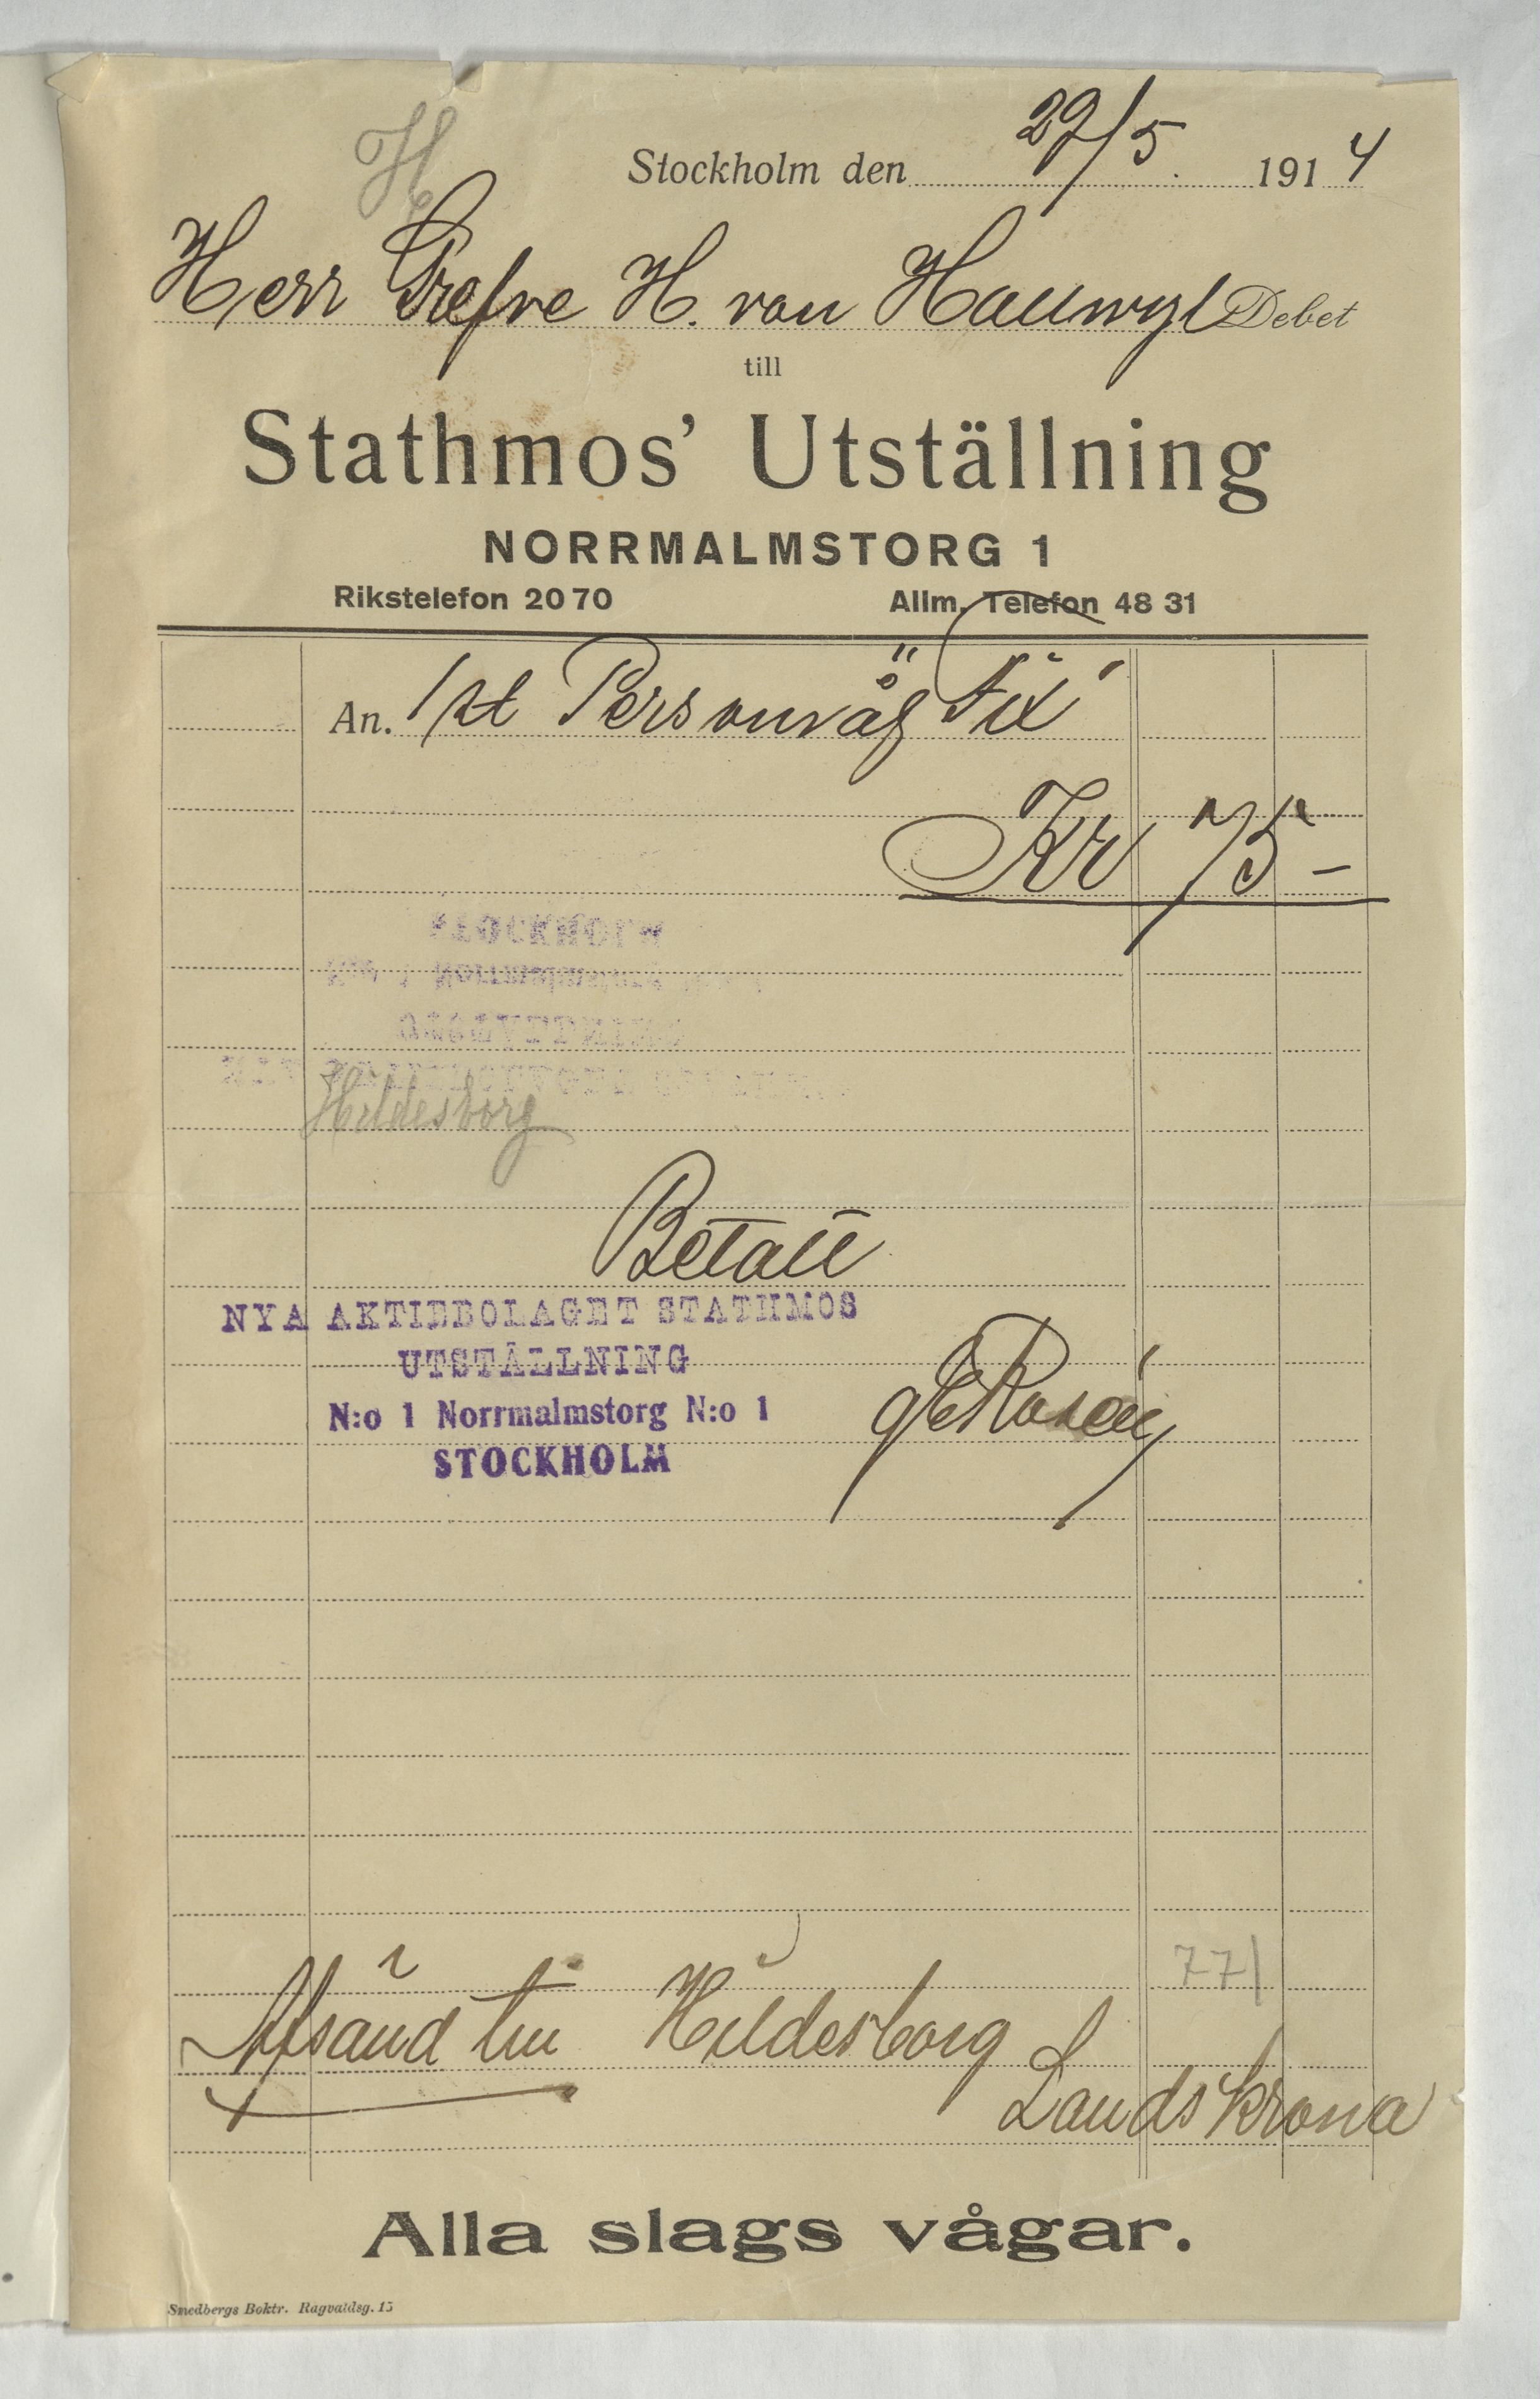 H
Stockholm den 29/5. 1914
Herr Grefve H. von Hallwyl Debet
till
Stathmos' Utställning
NORRMALMSTORG 1
Rikstelefon 20 70 Allm. Telefon 48 31
An. 1 st Personvåg "Fix"
Kr 75 -
Hildesborg
Betalt
NYA AKTIEBOLAGET STATHMOS
UTSTÄLLNING
N:o 1 Norrmalmstorg N:o 1
STOCKHOLM
Rosén
771
Afsänd till Hildesborg
Landskrona
Alla slags vågar.
Smedbergs Boktr. Ragvaldsg. 15